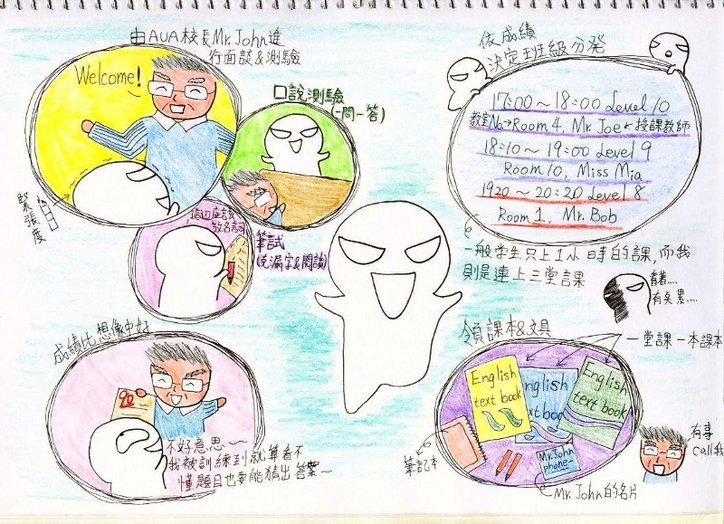 由AUA校長Mr.John進
行面談&測驗
Welcome!
緊張度
口說測驗
(一問一答)
筆試
(克漏字&閱讀)
這边應該
教名詞
成績比想像中好
90
不好意思~
我被訓練到就算看不
懂題目也要能猜出答案~
依成績
決定班級分發
17:00~18:00 Level 10
教室No→Room 4, Mr. Joe←授課教師
18:10~19:00 Level 9
Room 10, Miss Mia
1920~20:20 Level 8
Room 1, Mr. Bob
一般学生只上1小時的課,而我
則是連上三堂課
有点累....
領課本&文具
一堂課一本課本
English
text book
English
text book
English
text book
Mr.John
phone-
筆記本
Mr.John的名片
有事
call我